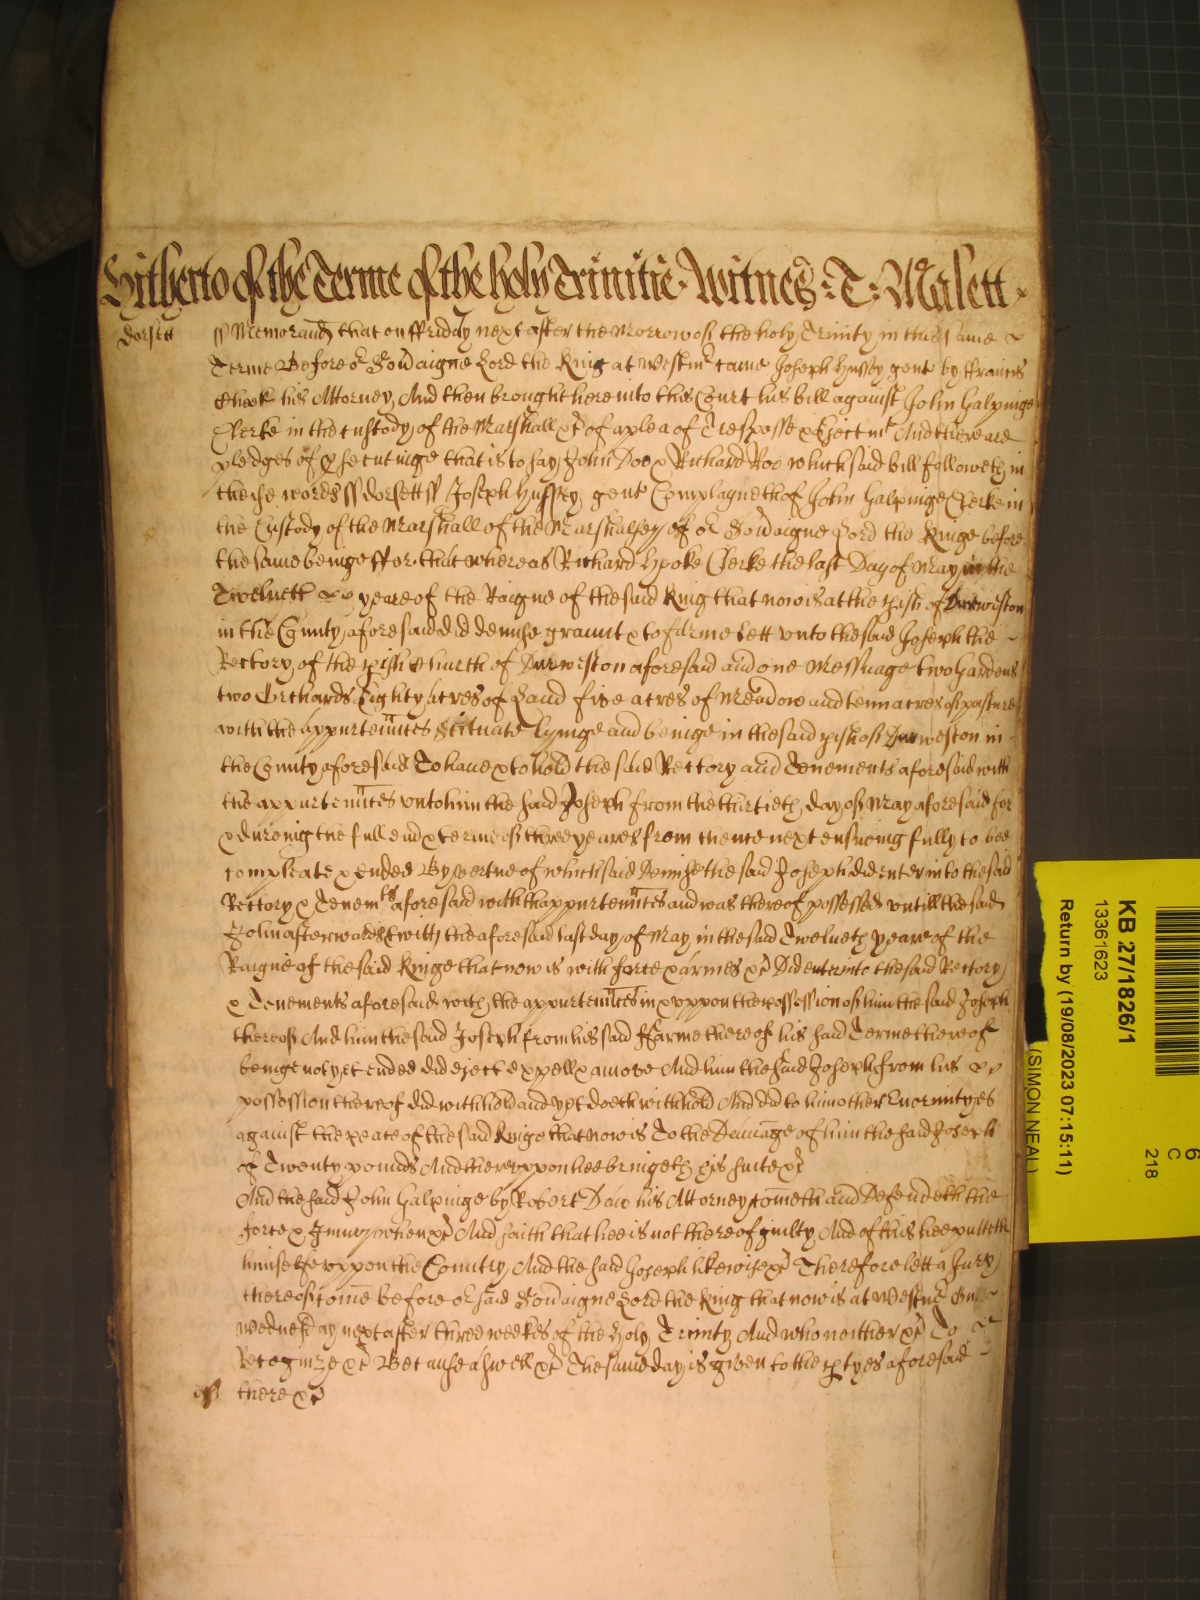 Hitherto of the Terme of the holy Trinitie. Witnes: T: Malett.
Dorsett ss Memorand that on ffriday next after the Morrow of the holy Trinity in this same
Terme Before or Sovaigne Lord the King at Westmr came Joseph Hussey gent by ffrancis
his Attorney And then brought here into this Court his bill against John Galpinge
Clerke in the custody of the Marshall &c of a plea of Trespasse & Ejectmt And there are
pledges of psecutinge that is to say John Doo & Richard Roo which said bill followeth in
these words ss Dorsett ss Joseph Hussey gent Complayneth of John Galpinge Clerke in
the Custody of the Marshall of the Marshalsey of or Sovaigne Lord the Kinge before
the same beinge ffor that whereas Richard Hooke Clerke the last Day of May in the
Twelueth yeare of the Raigne of the said King that now is at the pish of Durweston
in the County aforesaid did demise graunt & to farme lett vnto the said Joseph the
Rectory of the pish Church of Durweston aforesaid and one Messuage two Gardens
two Orchards Eighty acres of Land five acres of Meadow and tenn acres of pasture
with the appurtenntes Scituate lyinge and beinge in the said pish of Durweston in
the County aforesaid To haue & to hold the said Rectory and Tenements aforesaid with
the appurtenntes vnto him the said Joseph from the thirtieth day of May aforesaid for
& dureing the full end & terme of three yeares from thence next ensueing fully to bee
compleate & ended By vertue of which said Demise the said Joseph did enter into the said
Rectory & Tenemts aforesaid with thappurtenntes and was thereof possessed vntill the said
John afterwards & with the aforesaid last day of May in the said Twelueth yeare of the
Raigne of the said Kinge that now is with force & armes &c Did enter into the said Rectory
& Tenements aforesaid with the appurtenntes in & vppon the possession of him the said Joseph
thereof And him the said Joseph from his said ffarme thereof his said Terme thereof
beinge not yet ended did eject expell & amove And him the said Joseph from his
possession thereof did withhold and yet doeth withhold And did to him other Enormityes
against the peace of the said Kinge that now is To the Damage of him the said Joseph
of Twenty pounds And therevppon hee bringeth his suite &c
And the said John Galpinge by Robert Daw his Attorney cometh and Defendeth the
force & Iniury when &c And saith that hee is not thereof guilty And of this hee putteth
himselfe vppon the Country And the said Joseph likewise &c Therefore lett a Jury
thereof come before or said Sovaigne Lord the King that now is at Westmr On
Wednesday next after three weekes of the Holy Trinity And who neither &c To
Recognize &c Because aswell &c The same day is given to the ptyes aforesaid
there &c
KB 27/1826/1
13361623
Return by (19/08/2023 07:15:11)
(SIMON NEAL)
6
C
218